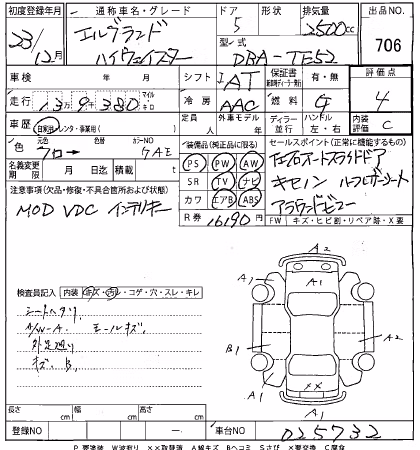 初度登録年月 通称車名・グレード ドア 形状 排気量 出品NO.
23/12月 エルグランド ハイウェイスター 5 2500cc 706
型式 DBA-TE52
車検 年 月 シフト IAT 保証書 有・無 評価点
走行 13万9千380 マイル キロ 冷房 AAC 燃料 G 4
車歴 自家用・レンタ・事業用( ) 定員 人 外車モデル 年 ディーラー 並行 ハンドル 左・右 内装評価 C
色 クロ→ カラーNO 7AE
装備品(純正品に限る) セールスポイント(正常に機能するもの)
名義変更期限 月 日迄 積載 t
PS PW AW
SR TV ナビ
カワ エアB ABS
R券 16190円
左右オートスライドドア
キセノン ルーフレザーシート
アラウンドビュー
FW キズ・ヒビ割・リペア跡・X要
注意事項(欠品・修復・不具合箇所および状態)
MOD VDC インテリキー
検査員記入 内装 キズ・汚・コゲ・穴・スレ・キレ
シートヘタリ
A/W-A モールキズ
外足廻り
キズ、B
A2
A1
A1
A2
B1
A2
XX
A1
A1
長さ cm 幅 cm 高さ cm
登録NO ー 車台NO 025732
P 要塗装 W波有り ××取替済 A線キズ Bヘコミ Sさび ×要交換 C腐食